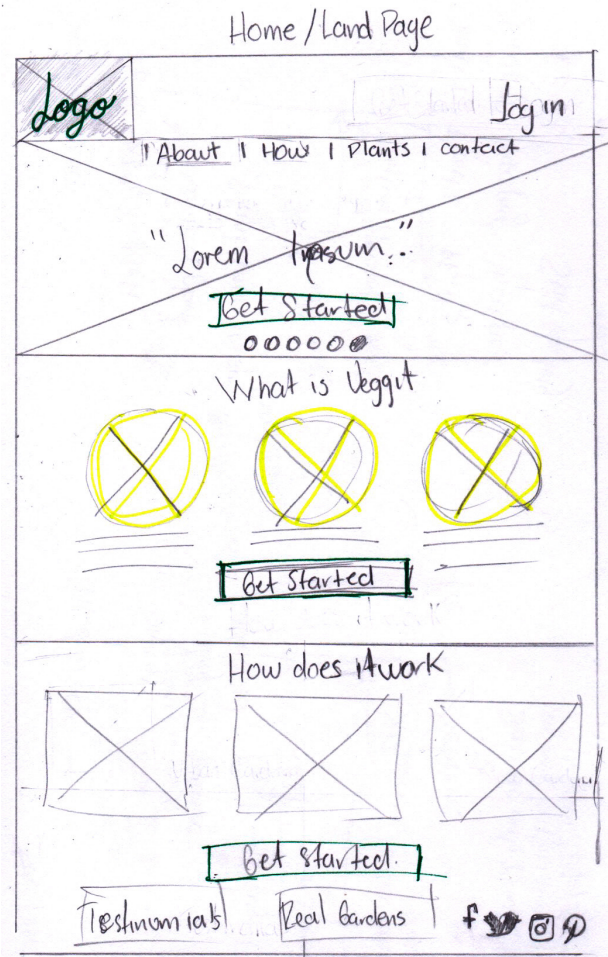 Home / Land Page
Logo
Log in
| About | How | Plants | contact
"Lorem Ipsum..."
Get Started
What is Veggit
Get Started
How does it work
Get Started.
Testimonials
Real Gardens